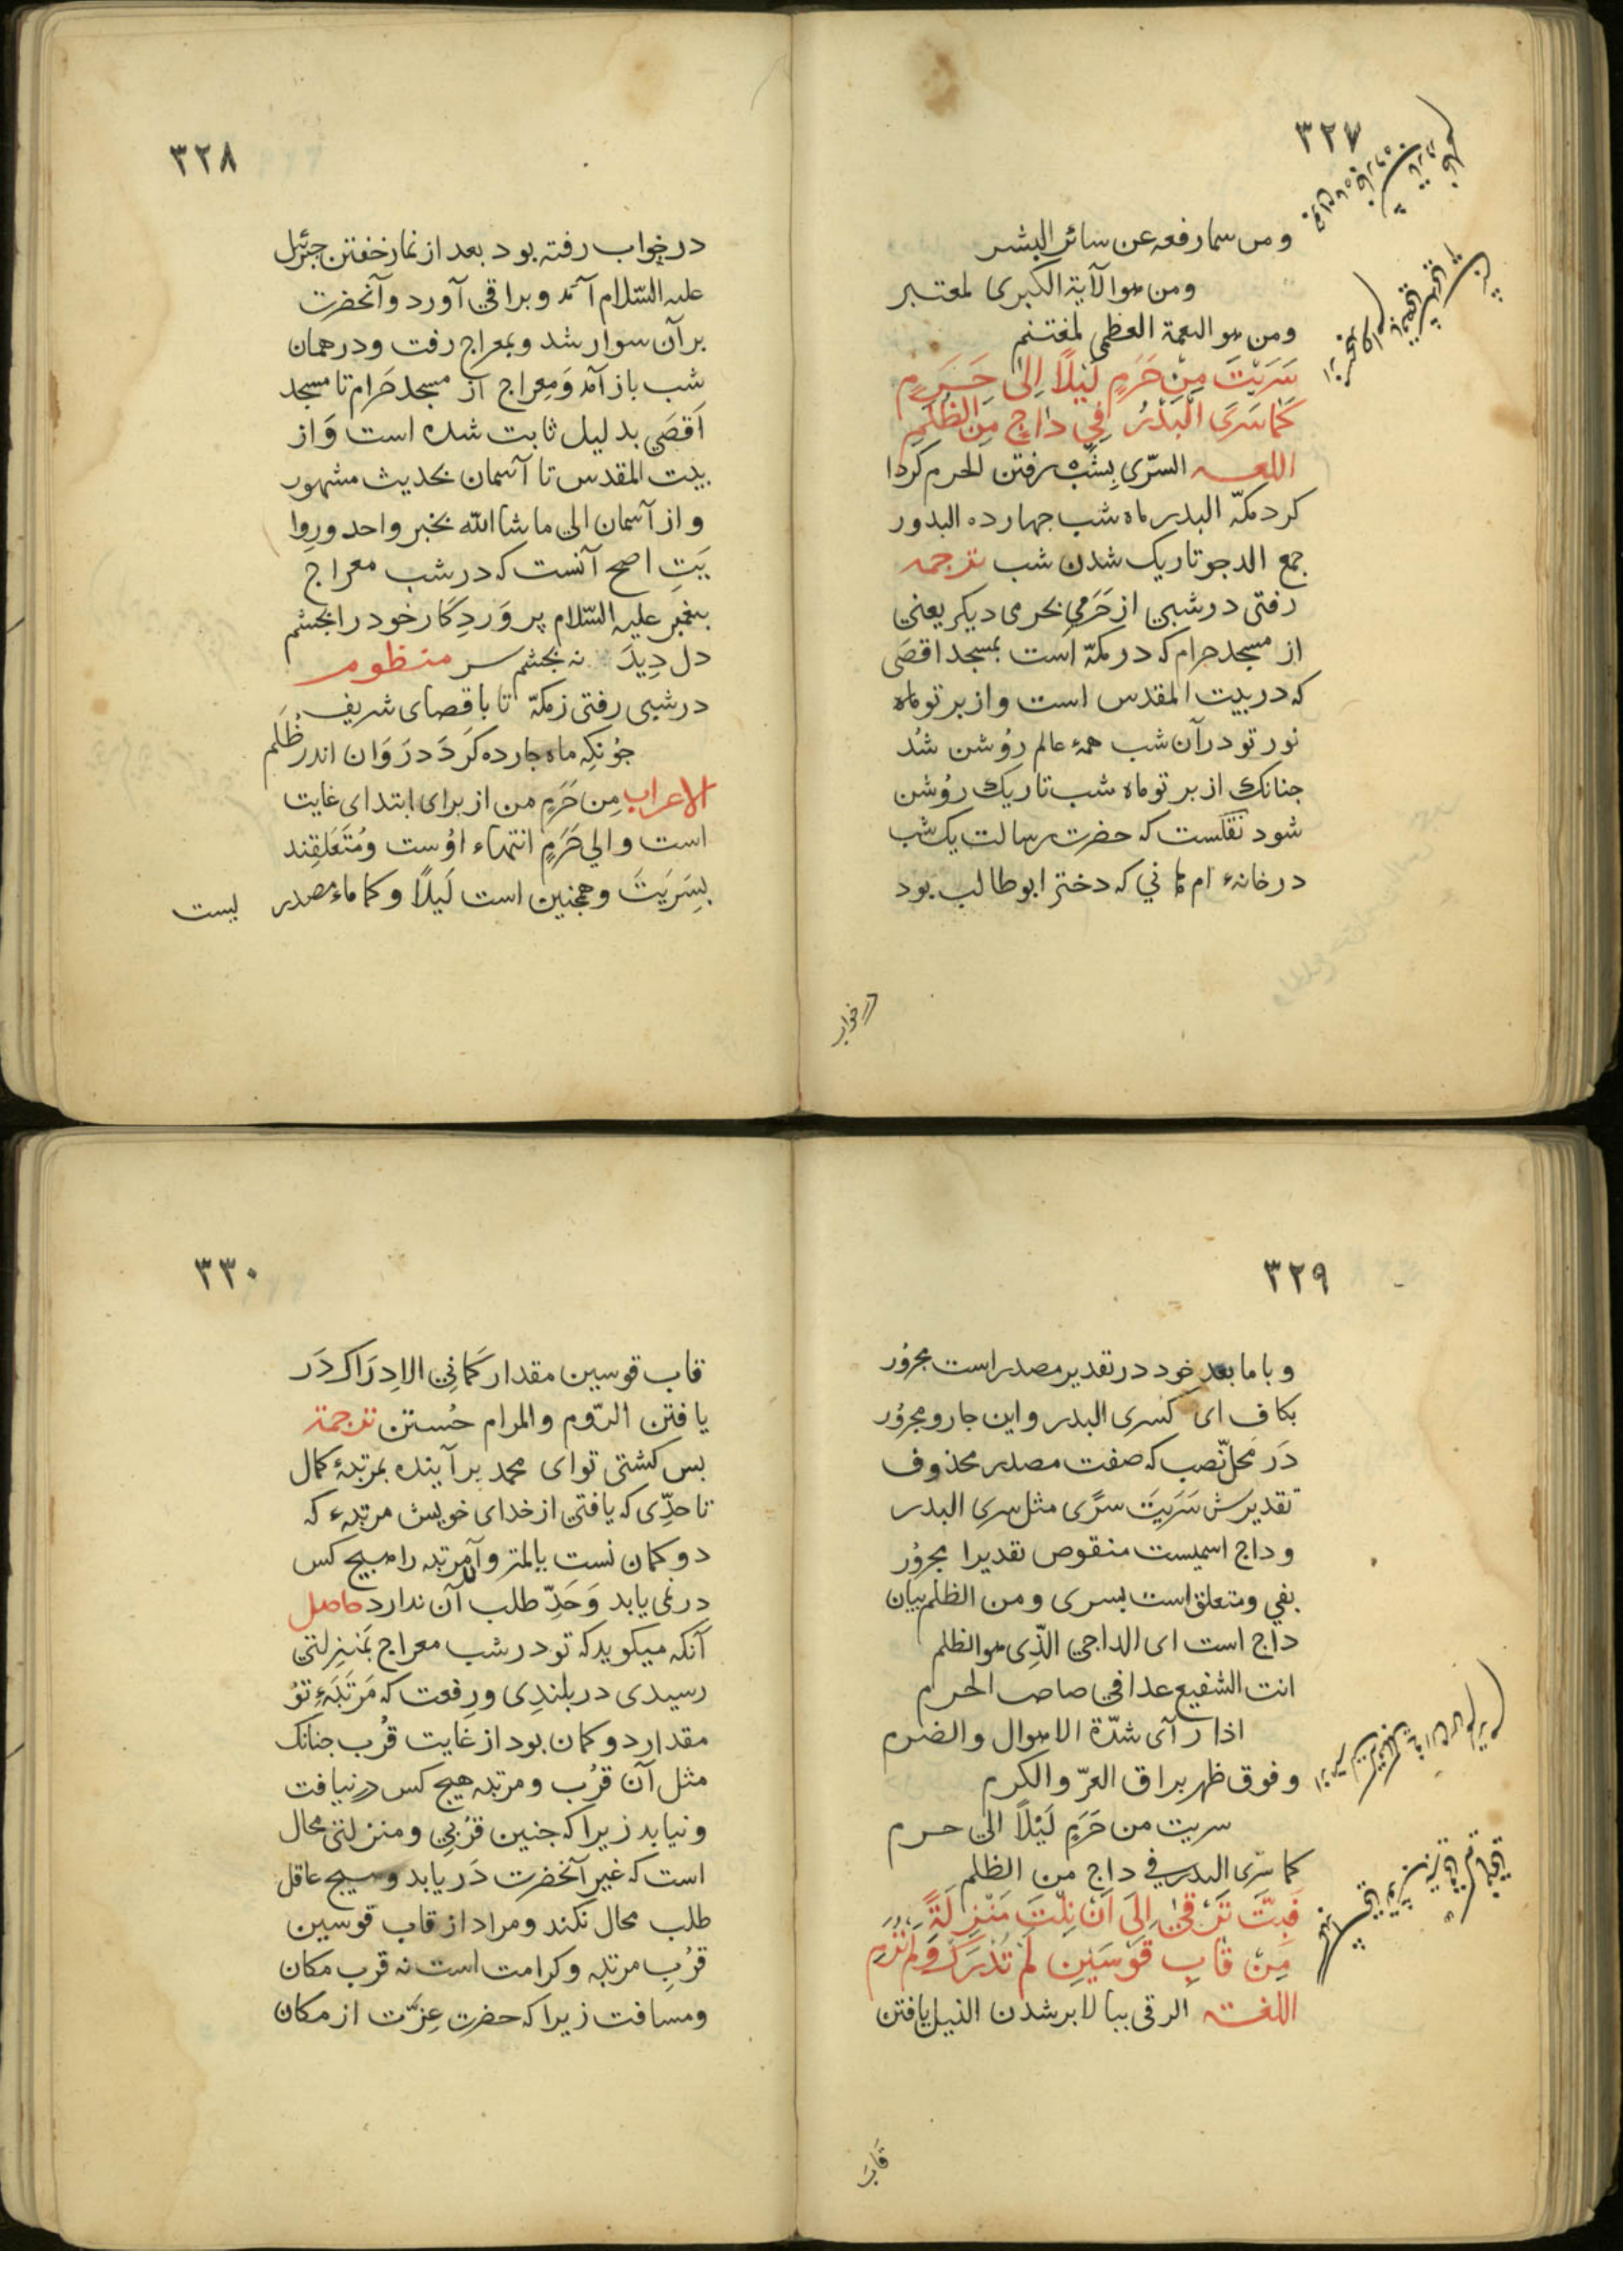 ٣٢٧
ومن سما رفعه عن سائر البشر
ومن هو الآیة الکبری لمعتبر
ومن هو النعمة العظمی لمغتنم
سَرَیْتَ مِنْ حَرَمٍ لَیْلًا اِلیٰ حَرَمٍ
کَمَا سَرَی الْبَدْرُ فِي دَاجٍ مِنَ الظُّلَمِ
اللغه السرّی بشب رفتن الحرم کردا
کرد مکّه البدر ماه شب جهارده البدور
جمع الدجو تاریک شدن شب ترجمه
رفتی در شبی از حَرَمي بحرمی دیکر یعنی
از مسجد حرام که در مکّه است بمسجد اقصَی
که در بیت المقدس است واز بر تو ماه
نور تو در آن شب همهٔ عالم رُوشن شُد
جنانک از بر تو ماه شب تاریک رُوشن
شود نقلست که حضرت رسالت یک شب
در خانهٔ ام هاني که دختر ابو طالب بود
در خواب
٣٢٨
در خواب رفته بود بعد از نماز خفتن جبرئیل
علیه السّلام آمد وبراقی آورد وآنحضرت
بر آن سوار شد وبمعراج رفت ودر همان
شب باز آمد وَمعراج از مسجد حَرام تا مسجد
اَقصَی بدلیل ثابت شده است وَاز
بیت المقدس تا آسمان بحدیث مشهور
واز آسمان الی ماشا الله بخبر واحد ورِوا
یَتِ اصح آنست که در شب معراج
بیغمبر علیه السّلام پروَردِکَار خود را بجشم
دل دِیدَ نه بجشم سر منظوم
در شبی رفتی ز مکّه تا باقصای شریف
جُونکِه ماه جارده کَردَ دَروَان اندر ظُلَم
الاعراب مِن حَرَمٍ من از برای ابتدای غایت
است والي حَرَمٍ انتهاء اوُست ومُتَعَلقِند
بسَرَیَتَ وهمجنین است لَیلًا وکما ماء مصدر یست
٣٢٩
وبا ما بعد خود در تقدیر مصدر است مجرُور
بکاف ای کسری البدر واین جار ومجرُور
دَر محلّ نصب که صفت مصدر محذوف
تقدیرش سَرَیتَ سرًی مثل سری البدر
وداج اسمیست منقوص تقدیرا مجرُور
بفي ومتعلق است بسری ومن الظلم بیان
داج است ای الداجي الّذِی هو الظلم
انت الشفیع غدا في صاحب الحرم
اذا رآی شدّة الاهوال والضرم
وفوق ظهر براق العزّ والکرم
سریت من حَرَمٍ لَیْلًا الی حرم
کما سَرَی البدر في داج من الظلم
فَبِتَّ تَرْقیٰ اِلَی اَنْ نِلْتَ مَنْزِلَةً
مِنْ قَابِ قَوْسَیْنِ لَمْ تُدْرَکْ وَلَمْ تُرَمِ
اللغته الرقی ببالا بر شدن النیل یافتن
قَابَ
٣٣٠
قاب قوسین مقدار کَمانِي الاِدرَاک دَر
یافتن الرّوم والمرام جُستن ترجمة
بس کشتی تو ای محمد بر آینده بمرتبهٔ کمال
تا حدّی که یافتی از خدای خویش مرتبهٔ که
دو کمان نست یالمتر وآن مرتبه را هیچ کس
در نمی یابد وَحَدِّ طلب آن ندارد حاصل
آنکه میکوید که تو در شب معراج بمَنزِلتی
رسیدی در بلندِی ورِفعت که مَرتَبَهٔ تُو
مقدار دو کمان بود از غایت قُرب جنانک
مثل آن قُرب ومرتبه هیچ کس در نیافت
ونیابد زیرا که جنین قُربي ومنزلتی محال
است که غیر آنخضرت دَر یابد وهیچ عاقل
طلب محال نکند ومراد از قاب قوسین
قُرب مرتبه وکرامت است نه قرب مکان
ومسافت زیرا که حضرت عِزَّت از مکان